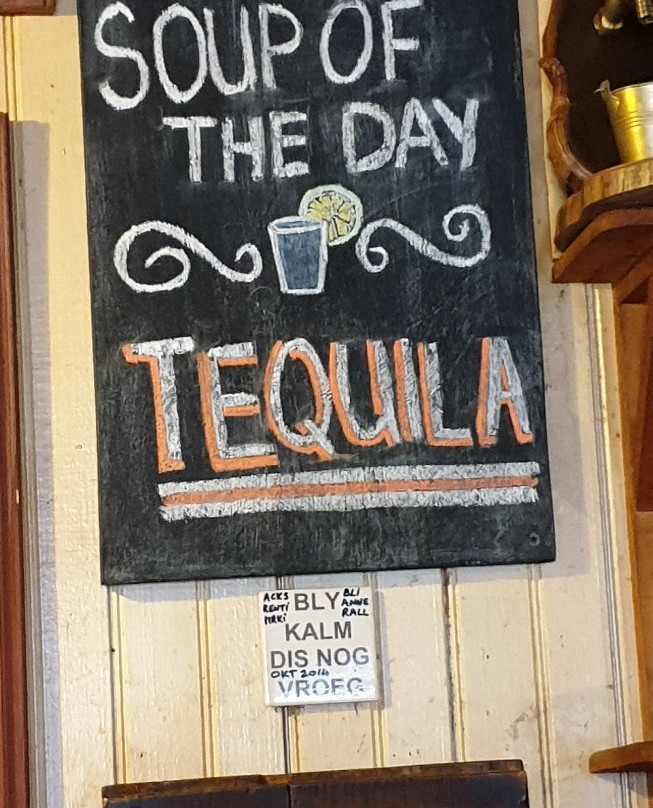 SOUP OF
THE DAY
TEQUILA
BLY
KALM
DIS NOG
OKT 2014
VROEG
ACKS
RENTI
BLI
ANNE
RALL